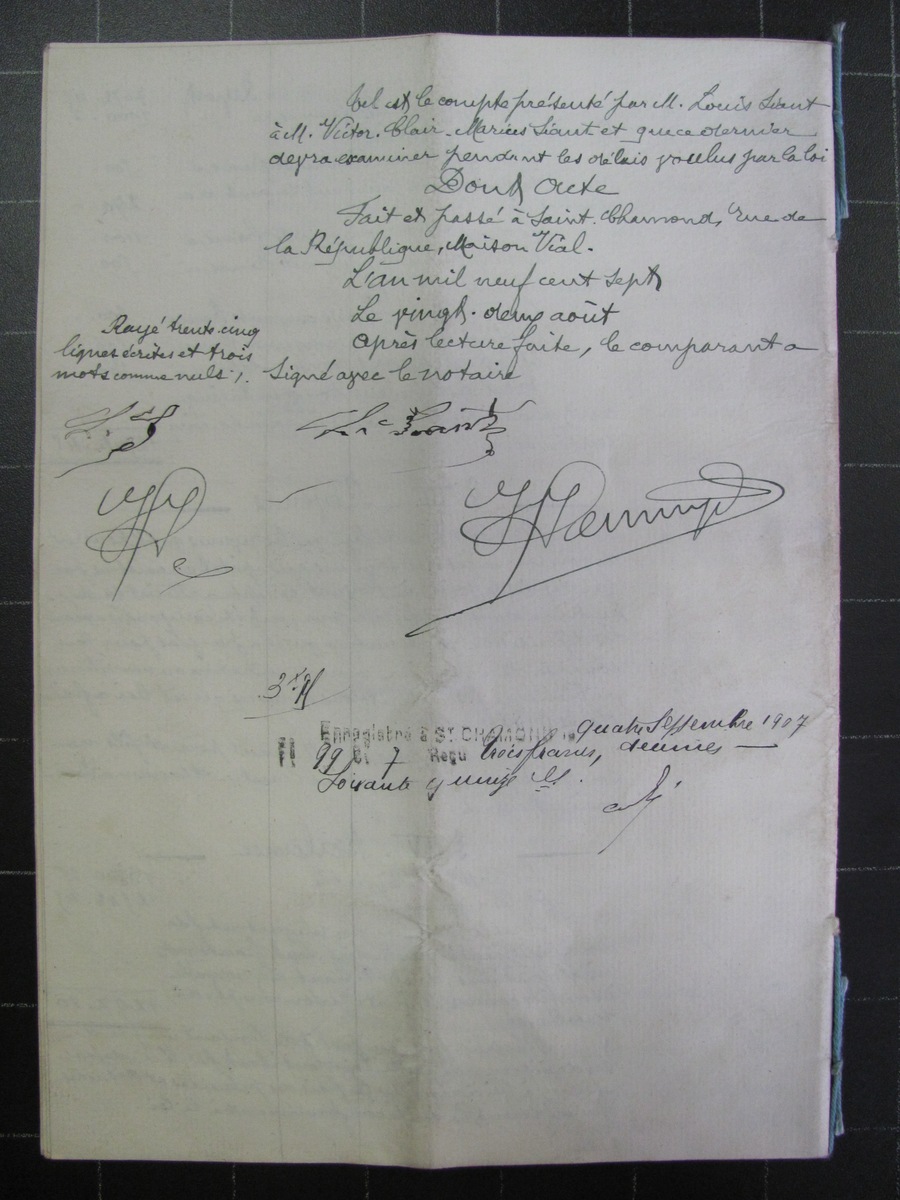 Tel est le compte présenté par M. Louis Siant
à M. Victor. Clair. Marius Siant et que ce dernier
devra examiner pendant les délais voulus par la loi
Dont Acte
Fait et passé à Saint. Chamond, rue de
la République, Maison Vial.
L'an mil neuf cent sept
Le vingt. deux août
Rayé trente. cinq
lignes écrites et trois
mots comme nuls ./.
Après lecture faite, le comparant a
signé avec le notaire
Enregistré à ST. CHAMOND le quatre Septembre 1907
99 7 Reçu trois francs, décimes —
Soixante quinze